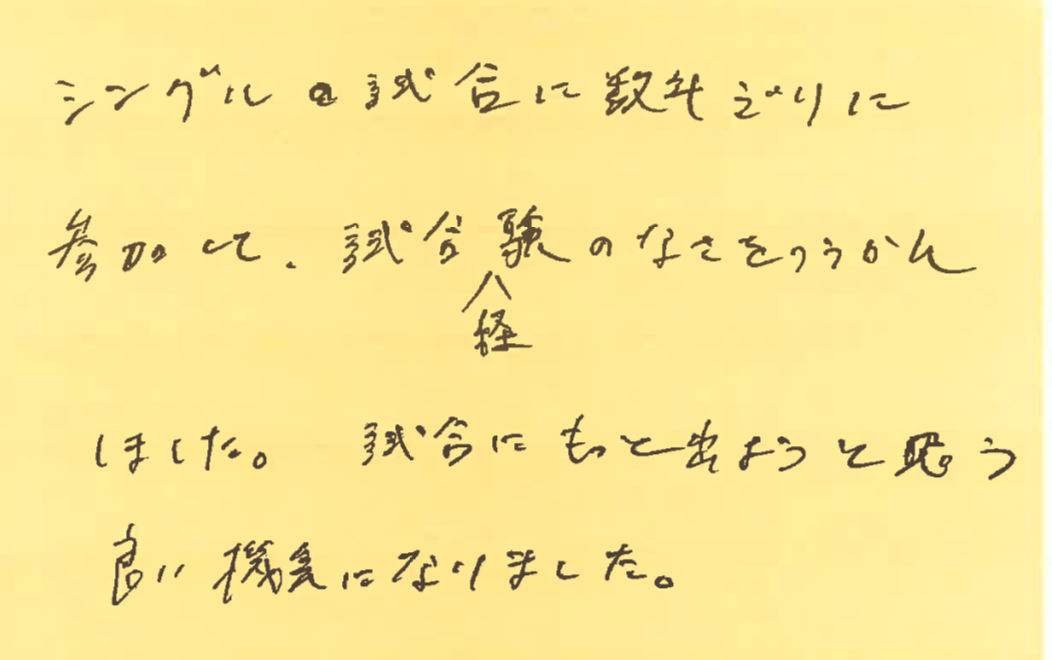 シングルの試合に数年ぶりに
参加して、試合経験のなさをつうかん
しました。 試合にもっと出ようと思う
良い機会になりました。